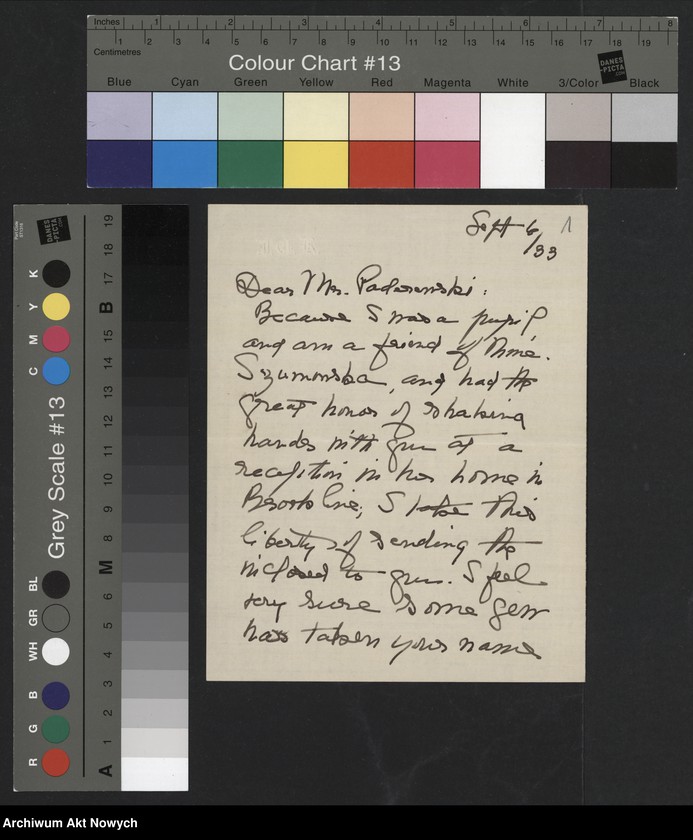 Inches 1 2 3 4 5 6 7 8
1 2 3 4 5 6 7 8 9 10 11 12 13 14 15 16 17 18 19
Centimetres
Colour Chart #13
DANES-PICTA.COM
Blue Cyan Green Yellow Red Magenta White 3/Color Black
DANES-PICTA.COM
Grey Scale #13
C M Y K
R G B WH GR BL
A 1 2 3 4 5 6 M 8 9 10 11 12 13 14 15 B 17 18 19
Sept 6/33
1
Dear Mr. Paderewski:
Because I was a pupil
and am a friend of Mme.
Szumowska, and had the
great honor of shaking
hands with you at a
reception in her home in
Brookline, I take this
liberty of sending the
inclosed to you. I feel
very sure some
has taken your name
Archiwum Akt Nowych